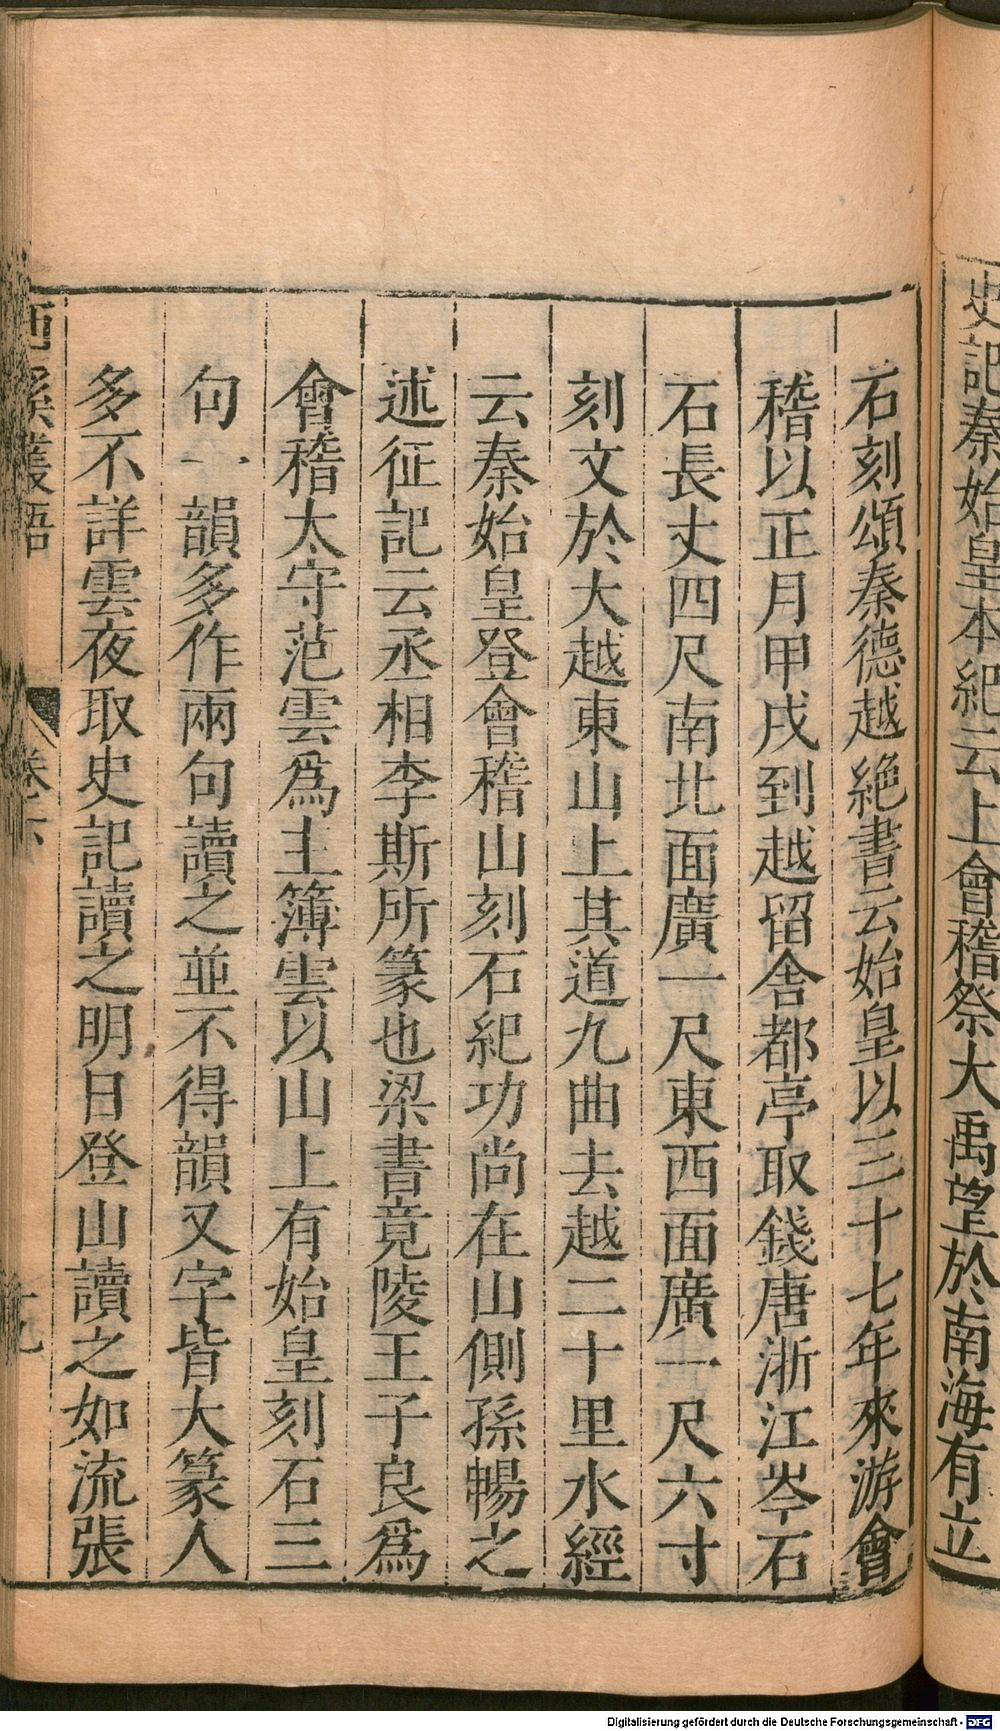 史記秦始皇本紀云上會稽祭大禹望於南海有立
石刻頌秦德越絶書云始皇以三十七年來游會
稽以正月甲戌到越留舍都亭取錢唐浙江岑石
石長丈四尺南北面廣一尺東西面廣一尺六寸
刻文於大越東山上其道九曲去越二十里水經
云秦始皇登會稽山刻石紀功尚在山側孫暢之
述征記云丞相李斯所篆也梁書竟陵王子良爲
會稽太守范雲爲主簿雲以山上有始皇刻石三
句一韻多作兩句讀之並不得韻又字皆大篆人
多不詳雲夜取史記讀之明日登山讀之如流張
西溪叢語 卷下 十九
Digitalisierung gefördert durch die Deutsche Forschungsgemeinschaft - DFG